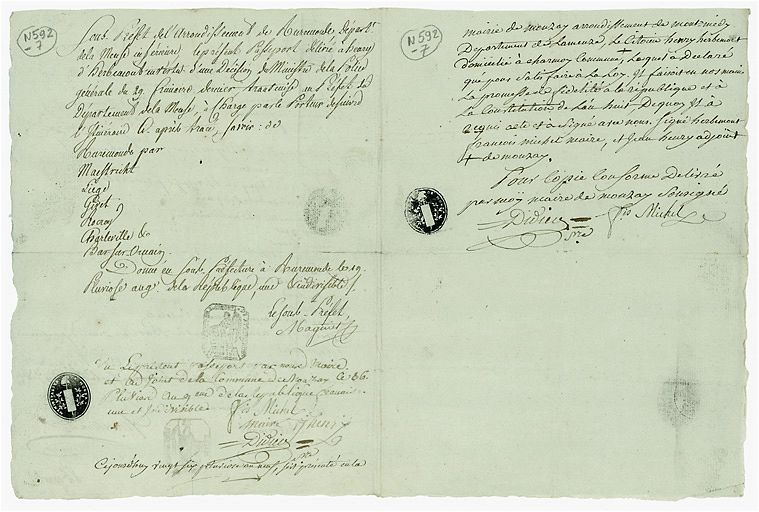 N592
7
Sous Préfet de l'arrondissement de Ruremonde départ.t
de la Meuse inférieure, le présent Passeport délivré à henry
d'Herbemont en vertu d'une Décision du Ministre de la Police
générale du 29 frimaire dernier transmise au Préfet du
Département de la Meuse, à charge par le Porteur de suivre
l'itinéraire ci après tracé, savoir: de
Ruremonde par
Maestricht
Liège
Givet
Rocroy
Charleville &
Bar sur Ornain.
Donné en Sous Préfecture à Ruremonde le 19
Pluviose an 9e de la République, une & indivisible
le Sous Préfet,
Vu Le présent passeport par nous maire
et adjoint de la Commune de Mouzay Ce 26
Pluviose an 9 de la république française
une et indivisible
fs Michel
maire
henry
Didier
Cejourd'huy vingt six pluviose an neuf, s'est présenté en la
N592
7
mairie de mouzay arrondissement de montmedy
Département de la meuze, le Citoien henry herbemont
domicilié a charmoy Commune, Lequel a Déclaré
que pour satisfaire à la Loy. Il faisoit en nos mains
La promesse de fidélité à la république et à
La Constitution de L'an huit De quoy Il a
requis acte et a Signé avec nous. Signé herbemont
françois michel maire, et Jean henry adjoint
de mouzay.
Pour Copie Conforme Délivré
par moy maire de mouzay Soussigné
Didier
fs Michel